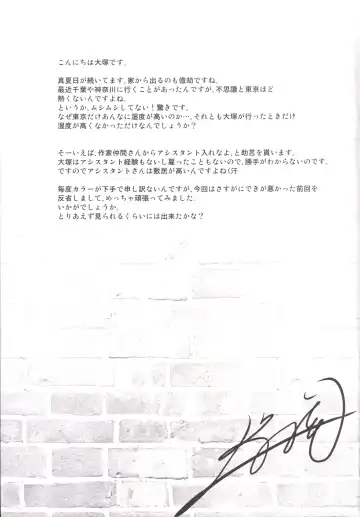 こんにちは大塚です。
真夏日が続いてます。家から出るのも億劫ですね。
最近千葉や神奈川に行くことがあったんですが、不思議と東京ほど
熱くないんですよね。
というか、ムシムシしてない!驚きです。
なぜ東京だけあんなに温度が高いのか…、それとも大塚が行ったときだけ
温度が高くなかっただけなんでしょうか?
そーいえば、作家仲間さんからアシスタント入れなよ、と助言を貰います。
大塚はアシスタント経験もないし雇ったこともないので、勝手がわからないのです。
ですのでアシスタントさんは敷居が高いんですよね(汗
毎度カラーが下手で申し訳ないんですが、今回はさすがにできが悪かった前回を
反省しまして、めっちゃ頑張ってみました。
いかがでしょうか。
とりあえず見られるくらいには出来たかな?